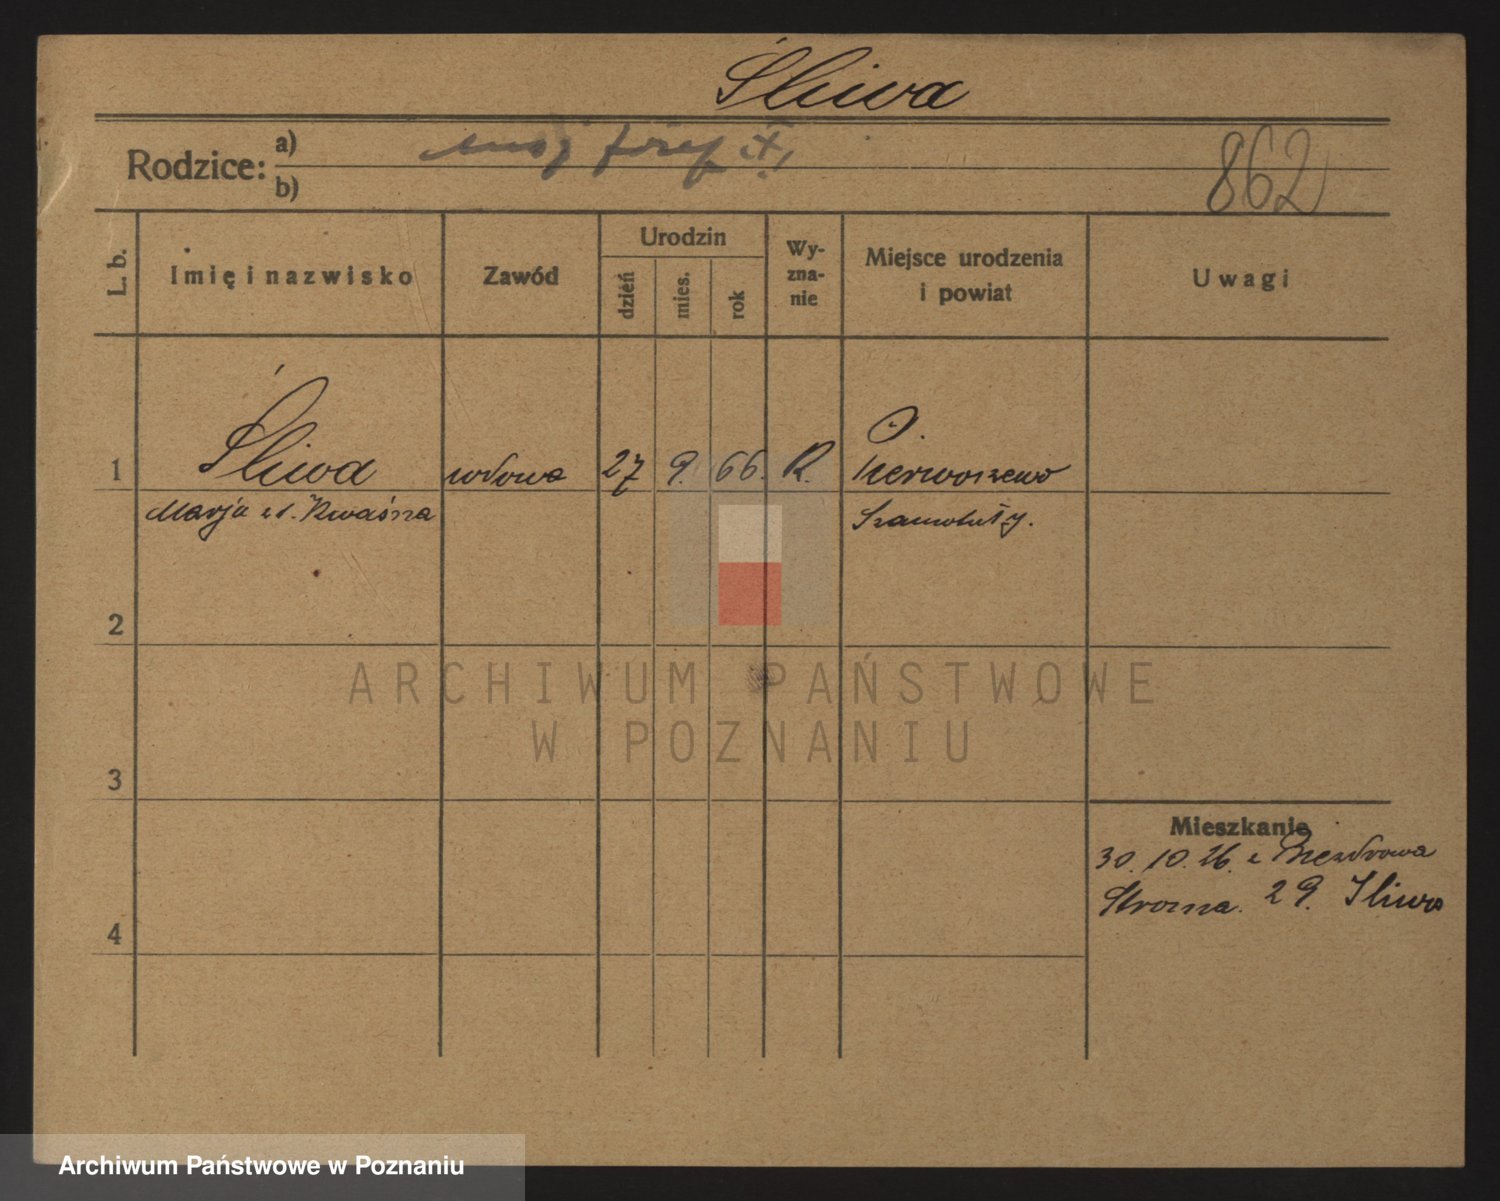 Śliwa
Rodzice: a) mąż Józef
b)
862
L. b.
Imię i nazwisko
Zawód
Urodzin
dzień
mies.
rok
Wy-
zna-
nie
Miejsce urodzenia
i powiat
Uwagi
1
Śliwa
wdowa
27
9.
66.
R.
Pierwoszewo
Marja
Kwaśna
Szamotuły.
2
ARCHIWUM PAŃSTWOWE
W POZNANIU
3
Mieszkanie
30. 10. 26. z
Stroma. 29. Śliwa
4
Archiwum Państwowe w Poznaniu